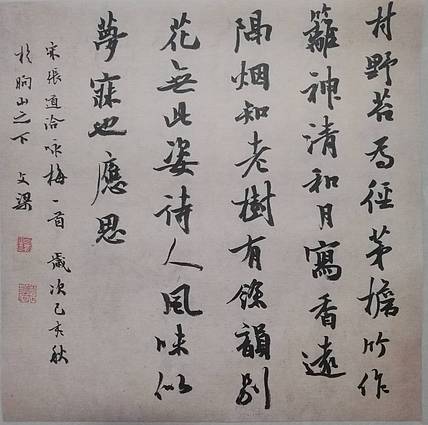 村野苔為徑茅檐竹作
籬神清和月寫香遠
隔烟知老樹有餘韻別
花無此姿待人風味似
夢寐也應思
宋張道洽咏梅一首 歲次己亥秋
於山之下 文梁